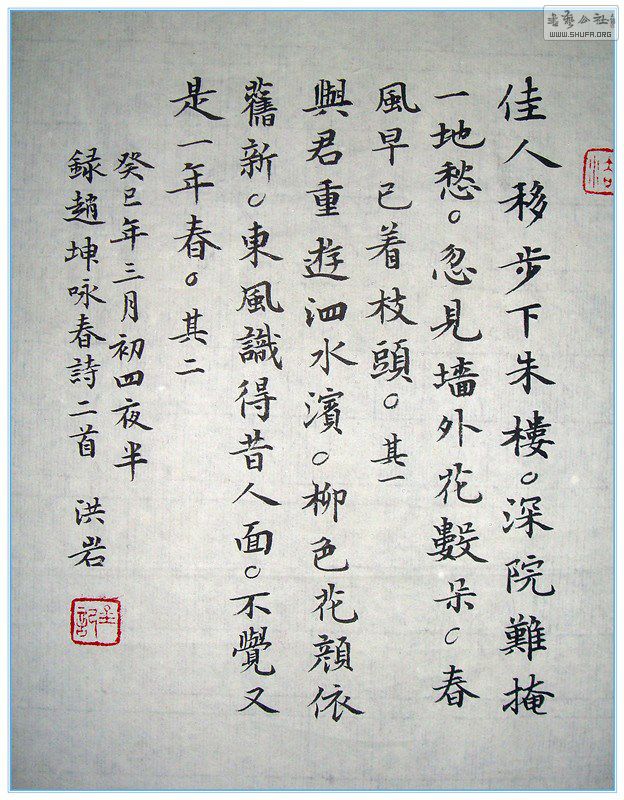 佳人移步下朱樓。深院難掩
一地愁。忽見墻外花數朵。春
風早已着枝頭。其一
與君重遊泗水濱。柳色花顔依
舊新。東風識得昔人面。不覺又
是一年春。其二
癸巳年三月初四夜半
録趙坤咏春詩二首 洪岩
書藝公社
WWW.SHUFA.ORG